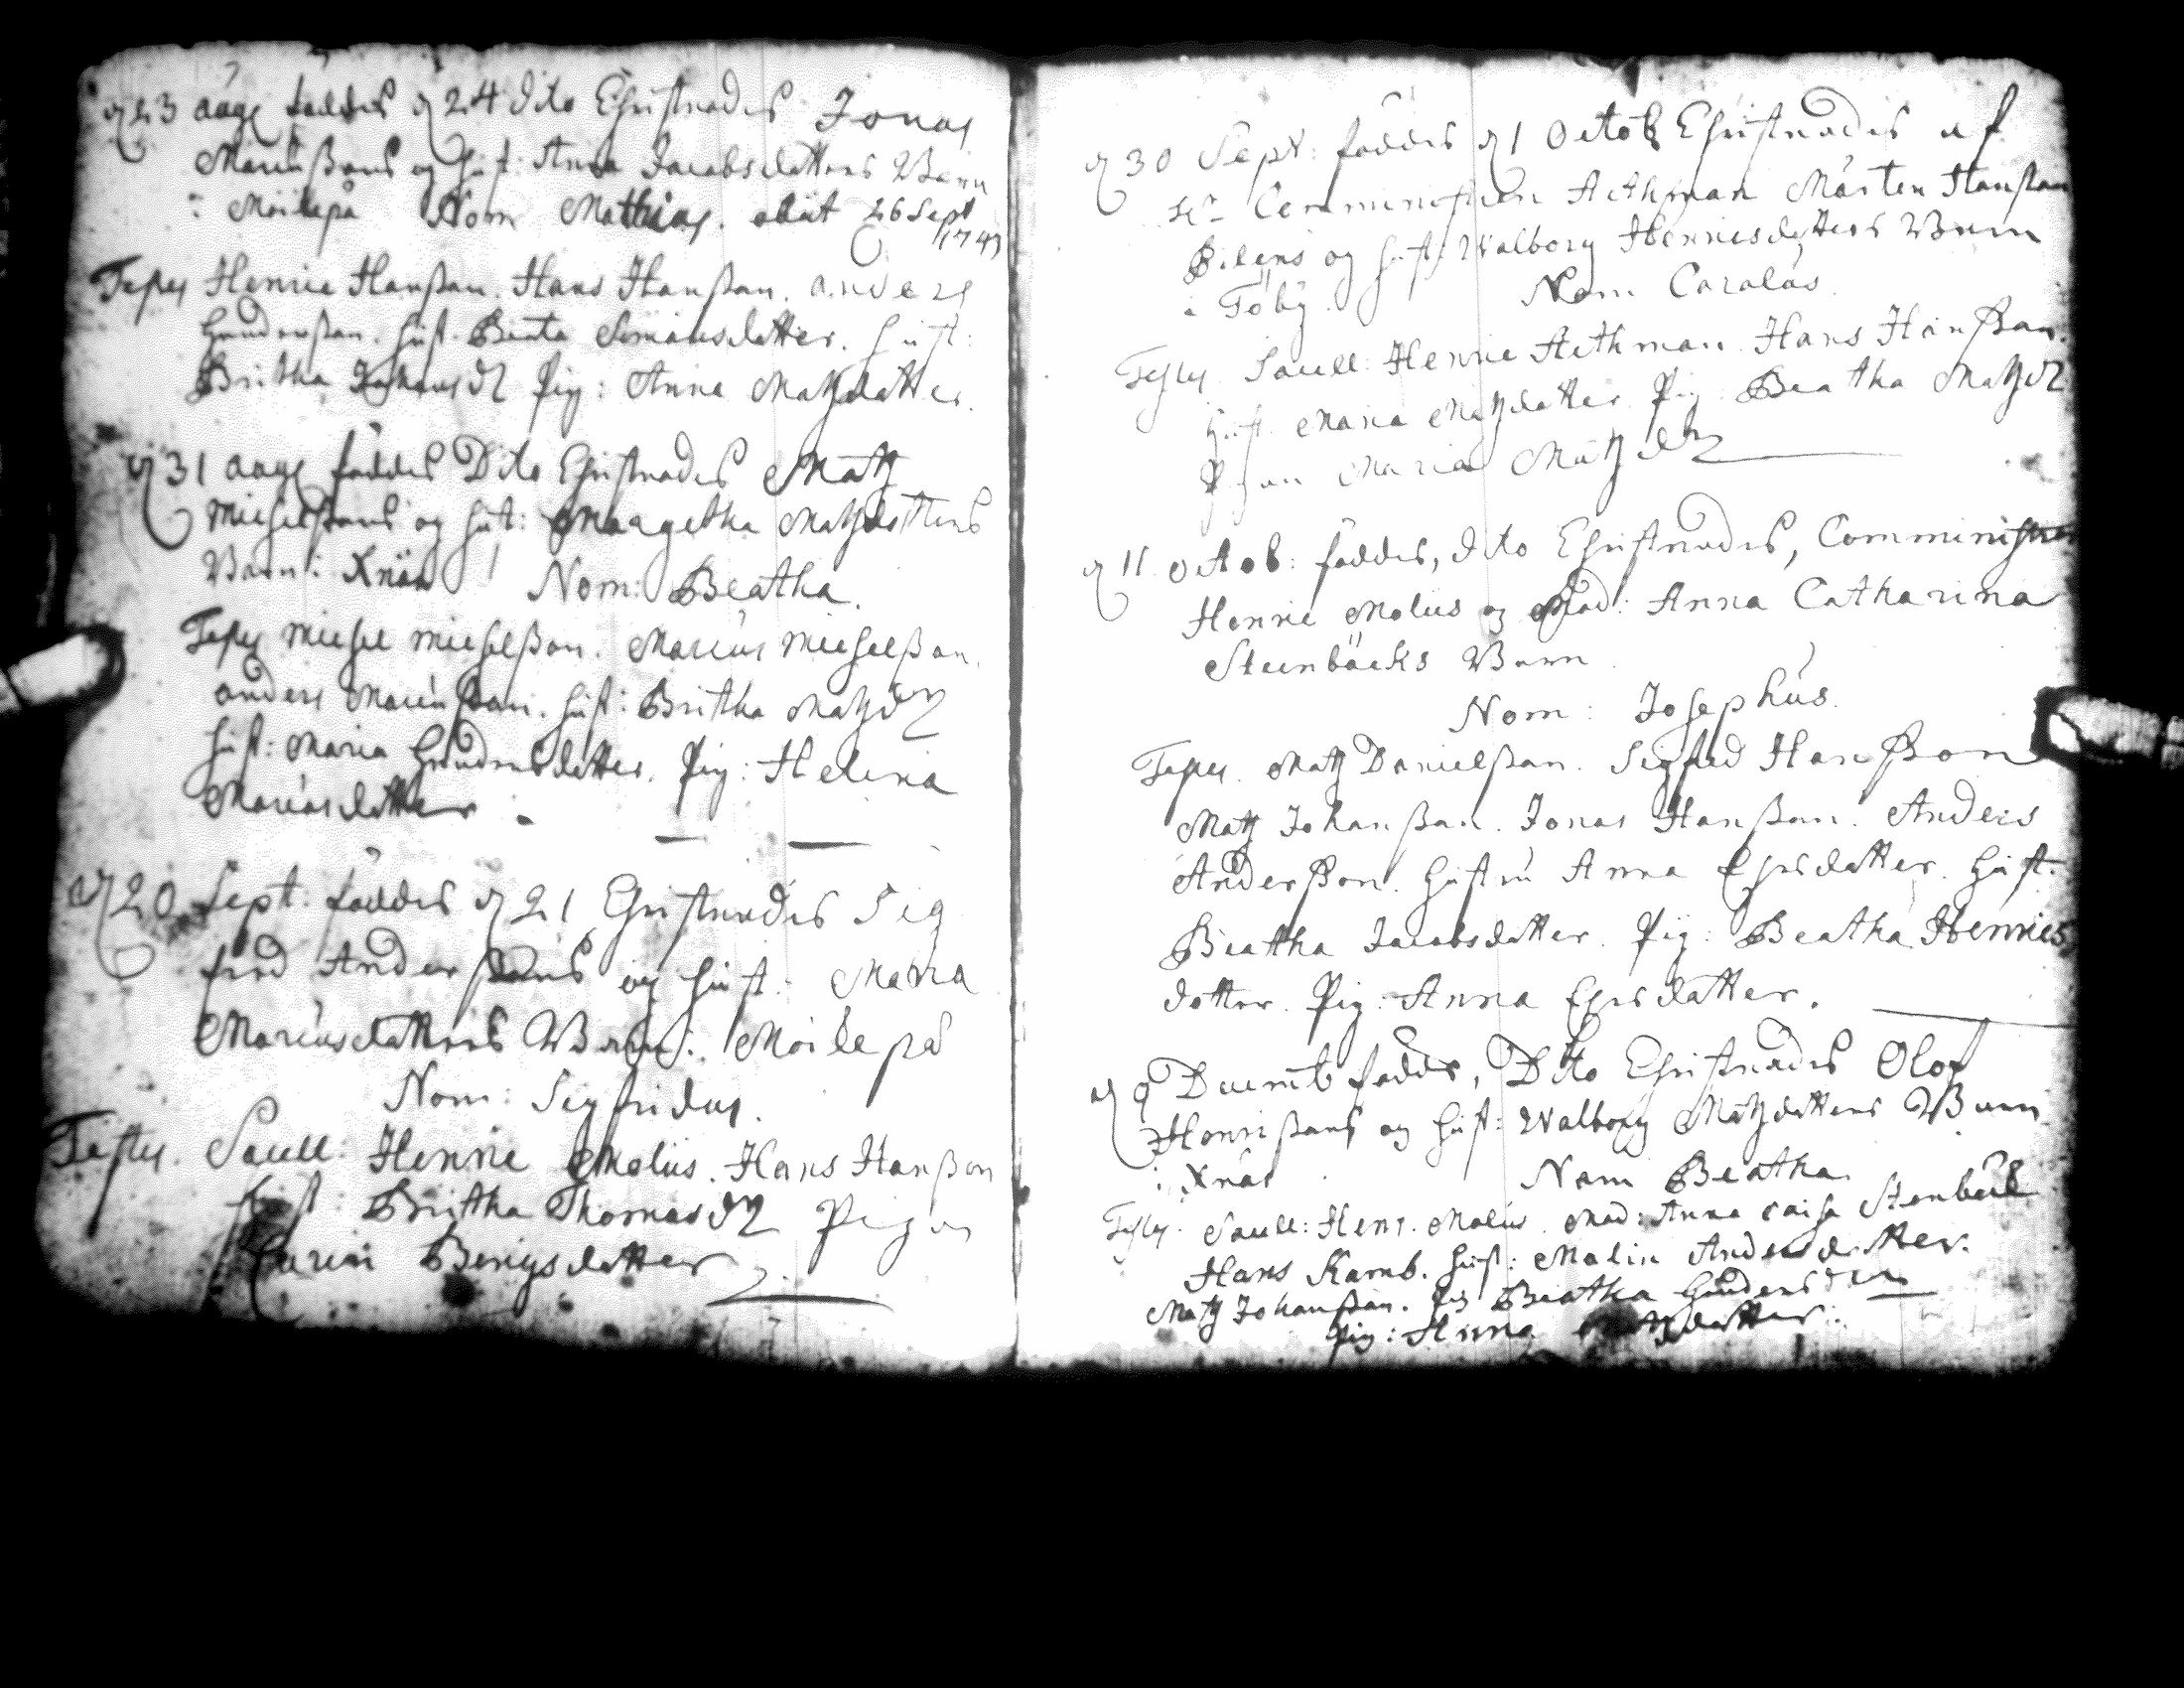 d 23 aug föddes d 24 dito Christnades Jonas
Marcusßons og hust: Anna Jacobsdatters Barn
i Moikepä Nom Mathias. obiit 26 Sept
1743
Testes Henric Hanßon. Hans Hanßon. anders
hust. Beata Simonsdatter. hust:
Britha Johansdr Pig: Anna Matzdatter.
d 31 aug föddes Dito Christnades Matz
Michelßons og hust: Margetha Matzdatters
Barn i Xnäs Nom: Beatha.
Testes Michel Michelßon. Marcus Michelßon.
anders Marcusßon. hust: Britha Matzdr
hust: Maria datter. Pig: Helena
Marcusdatter
d 20 Sept: föddes d 21 Christnades Sig
frid Anderßons og hust: Maria
Marcusdatters Barn i Moikepä
Nom: Sigfridus.
Testes. Sacell: Henric Molius. Hans Hanßon
hust: Britha Thomasdr Pigan
Carin Bengsdatter
d 30 Sept: föddes d 1 Octob Christnades af
Hr Comministern Aethman Mårten Hanßon
og hust: Walborg Henricsdatters Barn
i Töby. Nom Carolus.
Testes. Sacell: Henric Aethman. Hans Hanßon.
hust. Maria Matzdatter. Pig: Beatha Matzdr
Pigan Maria Matzdr
d 11 octob: föddes, dito Christnades, Comministern
Henric Molius og Mad: Anna Catharina
Steenbäcks Barn
Nom: Josephus.
Testes. Matz Danielßon. Sigfrid Hanßon
Matz Johanßon. Jonas Hanßon. Anders
Anderßon. hustru Anna Ersdatter. hust.
Beatha Jacobsdatter. Pig: Beatha Henrics
dotter. Pig: Anna Ersdatter.
d 9 Decemb föddes, Dito Christnades Olof
Henrißons og hust: Walborg Matzdatters Barn
i Xnäs Nom Beatha.
Testes. Sacell: Henr. Molius. Mad: Anna Caisa Stenbäck
Hans Kamb. hust: Malin Andersdatter.
Matz Johanßon. Pig Beatha
Pig: Anna Matzdatter.